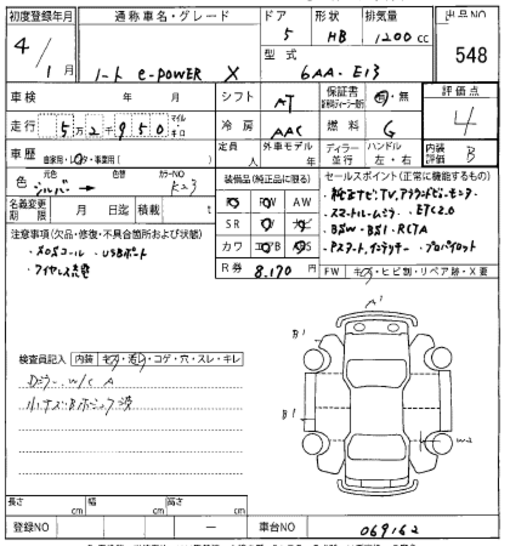 初度登録年月 通称車名・グレード ドア 形状 排気量 出品NO
4/1月 ノート e-POWER X 5 HB 1200cc 548
型式 6AA-E13
車検 年 月 シフト AT 保証書 有・無 評価点 4
走行 5万2千950 マイル キロ 冷房 AAC 燃料 G
車歴 自家用・レンタ・事業用( ) 定員 人 外車モデル 年 ディーラー・並行 ハンドル 左・右 内装評価 B
色 元色 シルバー 色替 カラーNO K23
装備品(純正品に限る) セールスポイント(正常に機能するもの)
名義変更期限 月 日迄 積載 t
PS PW AW
SR ナビ
カワ エアB ABS
R券 8,170円
・純正ナビ、TV、アラウンドビューモニター
・スマートルームミラー ・ETC2.0
・BSW・BSI・RCTA
・プロパイロット
FW キズ・ヒビ割・リペア跡・X要
注意事項(欠品・修復・不具合箇所および状態)
・SOSコール ・USBポート
・ワイヤレス充電
検査員記入 内装 キズ・汚れ・コゲ・穴・スレ・キレ
Dミラー W/C A
小キズ・B
A1
B1
B1
W2
長さ cm 幅 cm 高さ cm
登録NO ー 車台NO 069162